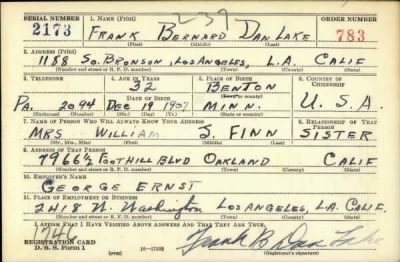 SERIAL NUMBER 1. NAME (Print) 239 ORDER NUMBER
2173 FRANK BERNARD DAN LAKE 783
(First) (Middle) (Last)
2. ADDRESS (Print)
1188 SO. BRONSON, LOS ANGELES, L.A. CALIF
(Number and street or R. F. D. number) (Town) (County) (State)
3. TELEPHONE 4. AGE IN YEARS 5. PLACE OF BIRTH 6. COUNTRY OF CITIZENSHIP
32 BENTON
DATE OF BIRTH (Town or county)
PA. 2094 DEC 19 1907 MINN. U.S.A.
(Exchange) (Number) (Mo.) (Day) (Yr.) (State or country)
7. NAME OF PERSON WHO WILL ALWAYS KNOW YOUR ADDRESS 8. RELATIONSHIP OF THAT PERSON
MRS WILLIAM S. FINN SISTER
(Mr., Mrs., Miss) (First) (Middle) (Last)
9. ADDRESS OF THAT PERSON
7966½ FOOTHILL BLVD OAKLAND CALIF
(Number and street or R. F. D. number) (Town) (County) (State)
10. EMPLOYER'S NAME
GEORGE ERNST
11. PLACE OF EMPLOYMENT OR BUSINESS
2418 W. Washington LOS ANGELES, L.A. CALIF.
(Number and street or R. F. D. number) (Town) (County) (State)
I AFFIRM THAT I HAVE VERIFIED ABOVE ANSWERS AND THAT THEY ARE TRUE.
REGISTRATION CARD
D. S. S. Form 1 16—17105 Frank B Dan Lake